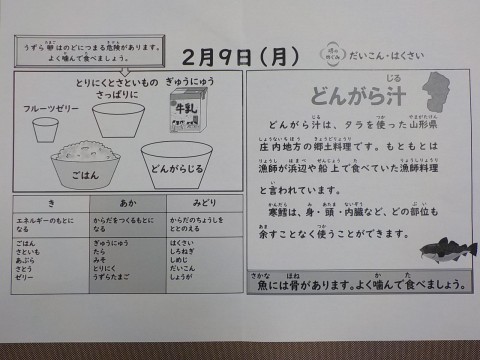 うずら卵はのどにつまる危険があります。
よく噛んで食べましょう。
2月9日(月)
だいこん・はくさい
とりにくとさといもの
さっぱりに
ぎゅうにゅう
フルーツゼリー
牛乳
ごはん
どんがらじる
き
あか
みどり
エネルギーのもとに
なる
からだをつくるもとに
なる
からだのちょうしを
ととのえる
ごはん
さといも
あぶら
さとう
ゼリー
ぎゅうにゅう
たら
みそ
とりにく
うずらたまご
はくさい
しろねぎ
しめじ
だいこん
しょうが
どんがら汁
どんがら汁は、タラを使った山形県
庄内地方の郷土料理です。もともとは
漁師が浜辺や船上で食べていた漁師料理
と言われています。
寒鱈は、身・頭・内臓など、どの部位も
余すことなく使うことができます。
魚には骨があります。よく噛んで食べましょう。